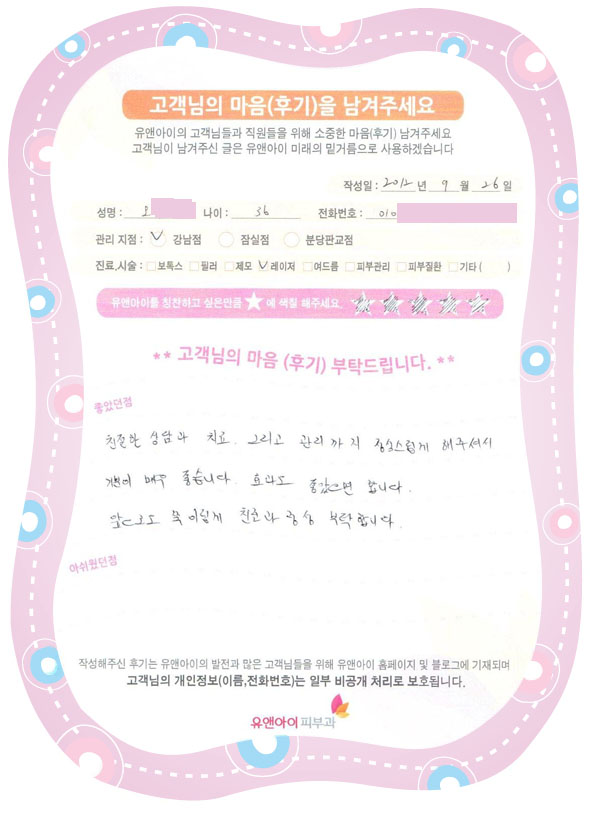 고객님의 마음(후기)을 남겨주세요
유앤아이의 고객님들과 직원들을 위해 소중한 마음(후기) 남겨주세요
고객님이 남겨주신 글은 유앤아이 미래의 밑거름으로 사용하겠습니다
작성일 : 2012 년 9 월 26 일
성명 : 오 나이 : 36 전화번호 : 010
관리 지점 : 강남점 잠실점 분당판교점
진료,시술 : 보톡스 필러 제모 레이저 여드름 피부관리 피부질환 기타 ( )
유앤아이를 칭찬하고 싶은만큼 ★ 에 색칠 해주세요
** 고객님의 마음 (후기) 부탁드립니다. **
좋았던점
친절한 상담과 치료. 그리고 관리까지 정성스럽게 해주셔서
기분이 매우 좋습니다. 효과도 좋았으면 합니다.
앞으로도 쭉 이렇게 친절과 정성 부탁합니다.
아쉬웠던점
작성해주신 후기는 유앤아이의 발전과 많은 고객님들을 위해 유앤아이 홈페이지 및 블로그에 기재되며
고객님의 개인정보(이름,전화번호)는 일부 비공개 처리로 보호됩니다.
유앤아이 피부과